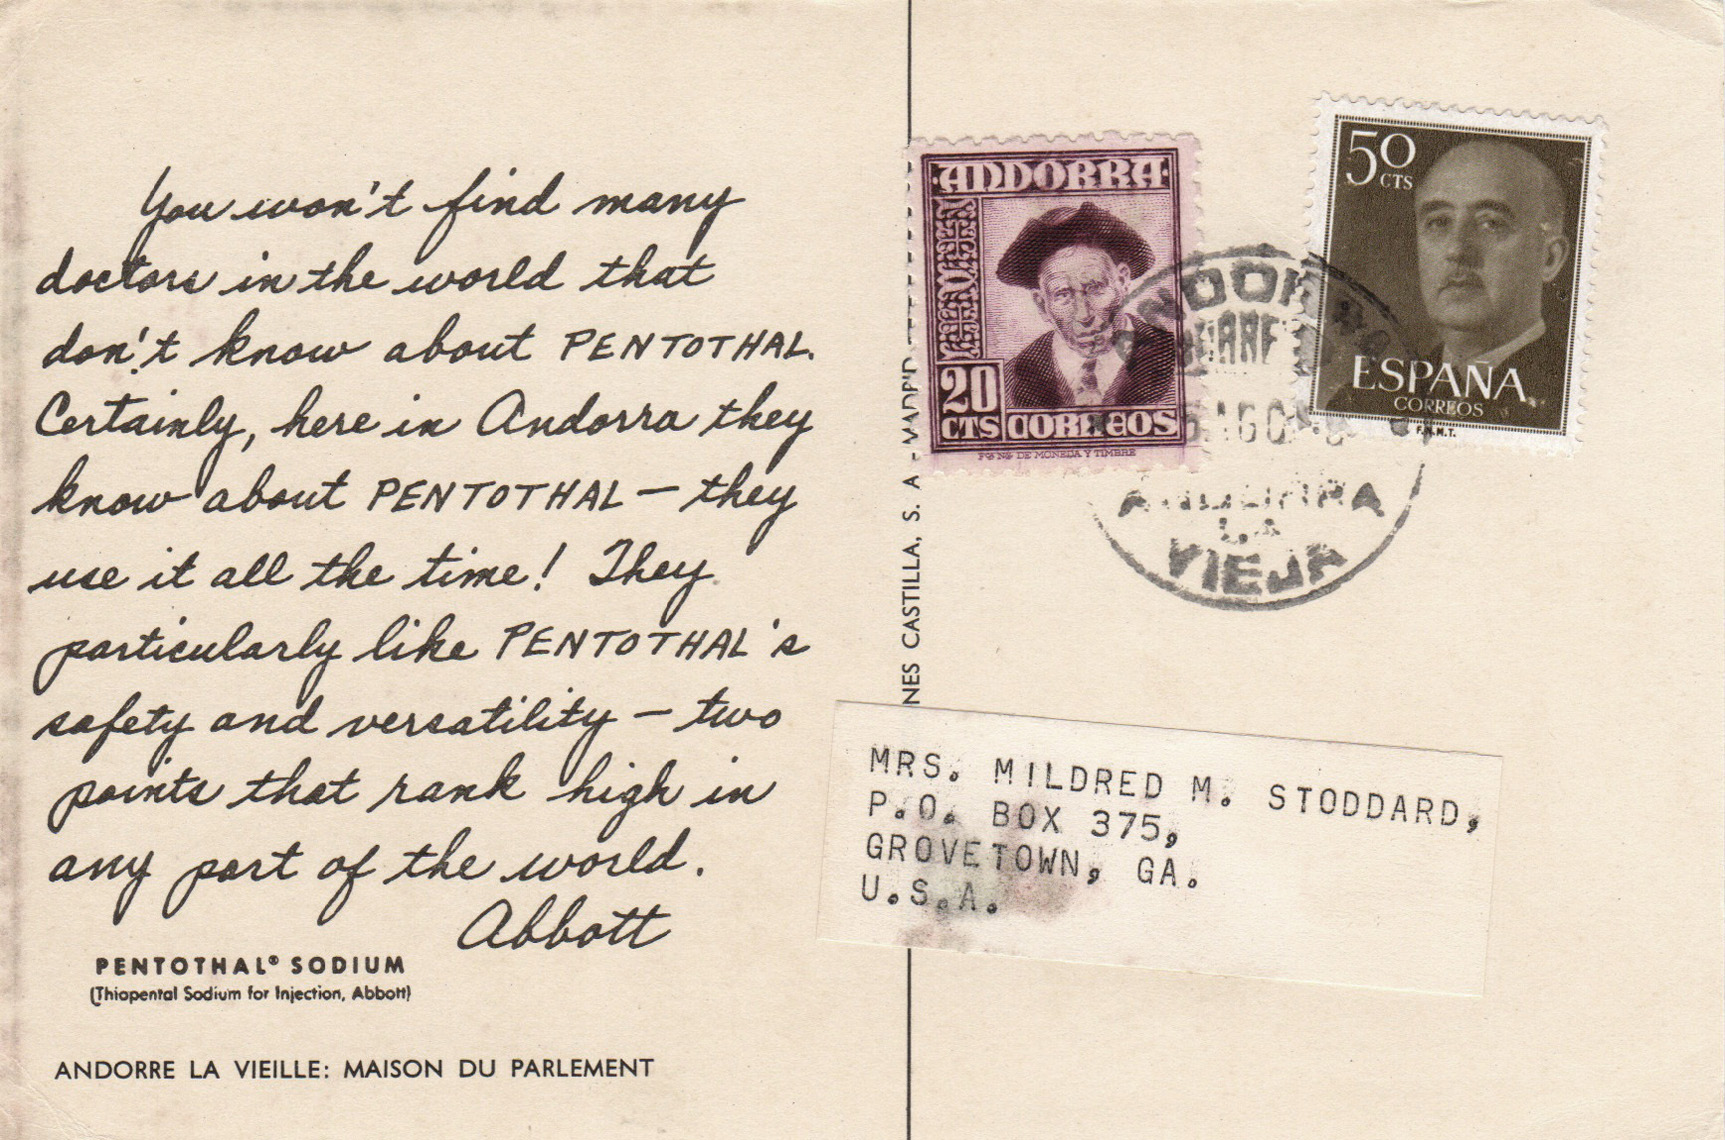 You won't find many
doctors in the world that
don't know about PENTOTHAL.
Certainly, here in Andorra they
know about PENTOTHAL — they
use it all the time! They
particularly like PENTOTHAL's
safety and versatility — two
points that rank high in
any part of the world.
Abbott
PENTOTHAL® SODIUM
(Thiopental Sodium for Injection, Abbott)
ANDORRE LA VIEILLE: MAISON DU PARLEMENT
NES CASTILLA, S. A - MADRID
ANDORRA
20
CTS CORREOS
DE MONEDA Y TIMBRE
50
CTS
ESPAÑA
CORREOS
F.N.M.T.
LA
VIEJA
MRS. MILDRED M. STODDARD,
P.O. BOX 375,
GROVETOWN, GA.
U.S.A.